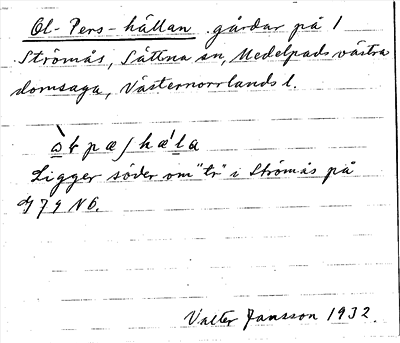 Ol-Pers-hällan gårdar på 1
Strömås, Sättna sn, Medelpads västra
domsaga, Västernorrlands l.
Ligger söder om "tr" i Strömås på
G 79 NO.
Valter Jansson 1932.